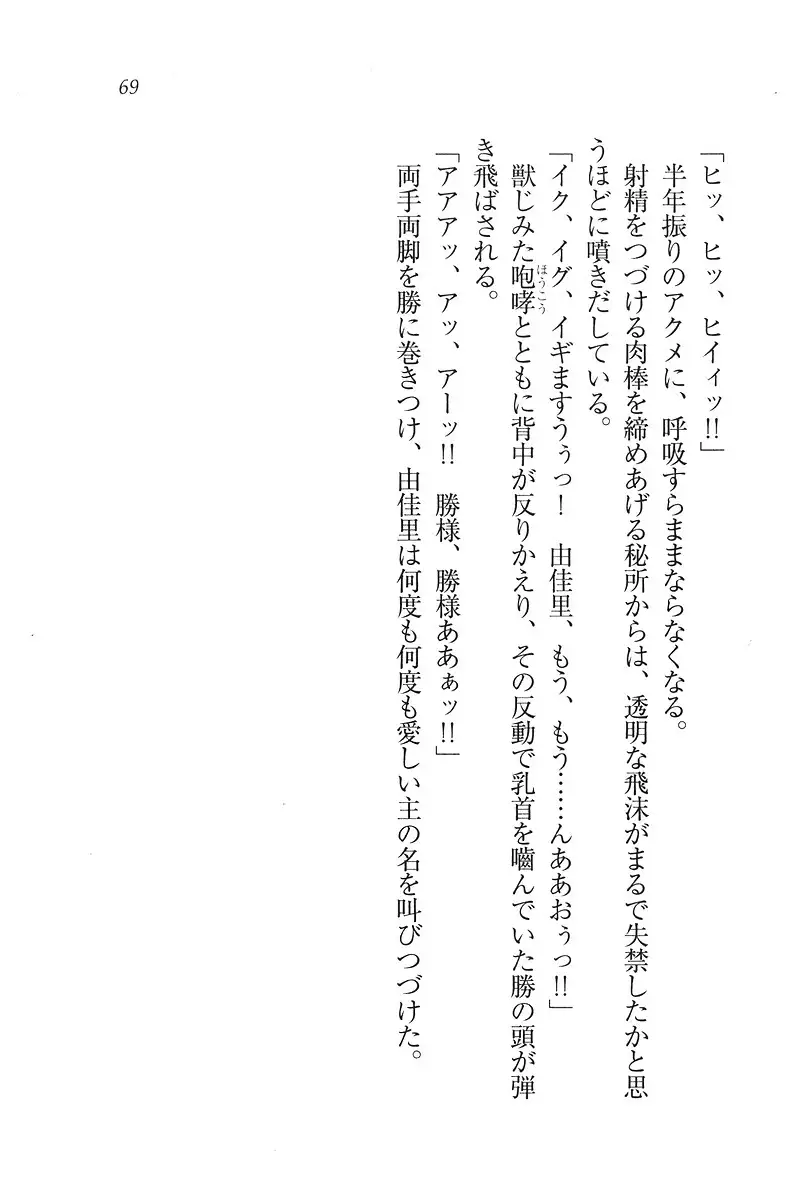 69
「ヒッ、ヒッ、ヒイィッ!!」
半年振りのアクメに、呼吸すらままならなくなる。
射精をつづける肉棒を締めあげる秘所からは、透明な飛沫がまるで失禁したかと思
うほどに噴きだしている。
「イク、イグ、イギますうぅっ！　由佳里、もう、もう……んああおぅっ!!」
獣じみた咆哮とともに背中が反りかえり、その反動で乳首を嚙んでいた勝の頭が弾
ほうこう
き飛ばされる。
「アアアッ、アッ、アーッ!!　勝様、勝様ああぁッ!!」
両手両脚を勝に巻きつけ、由佳里は何度も何度も愛しい主の名を叫びつづけた。